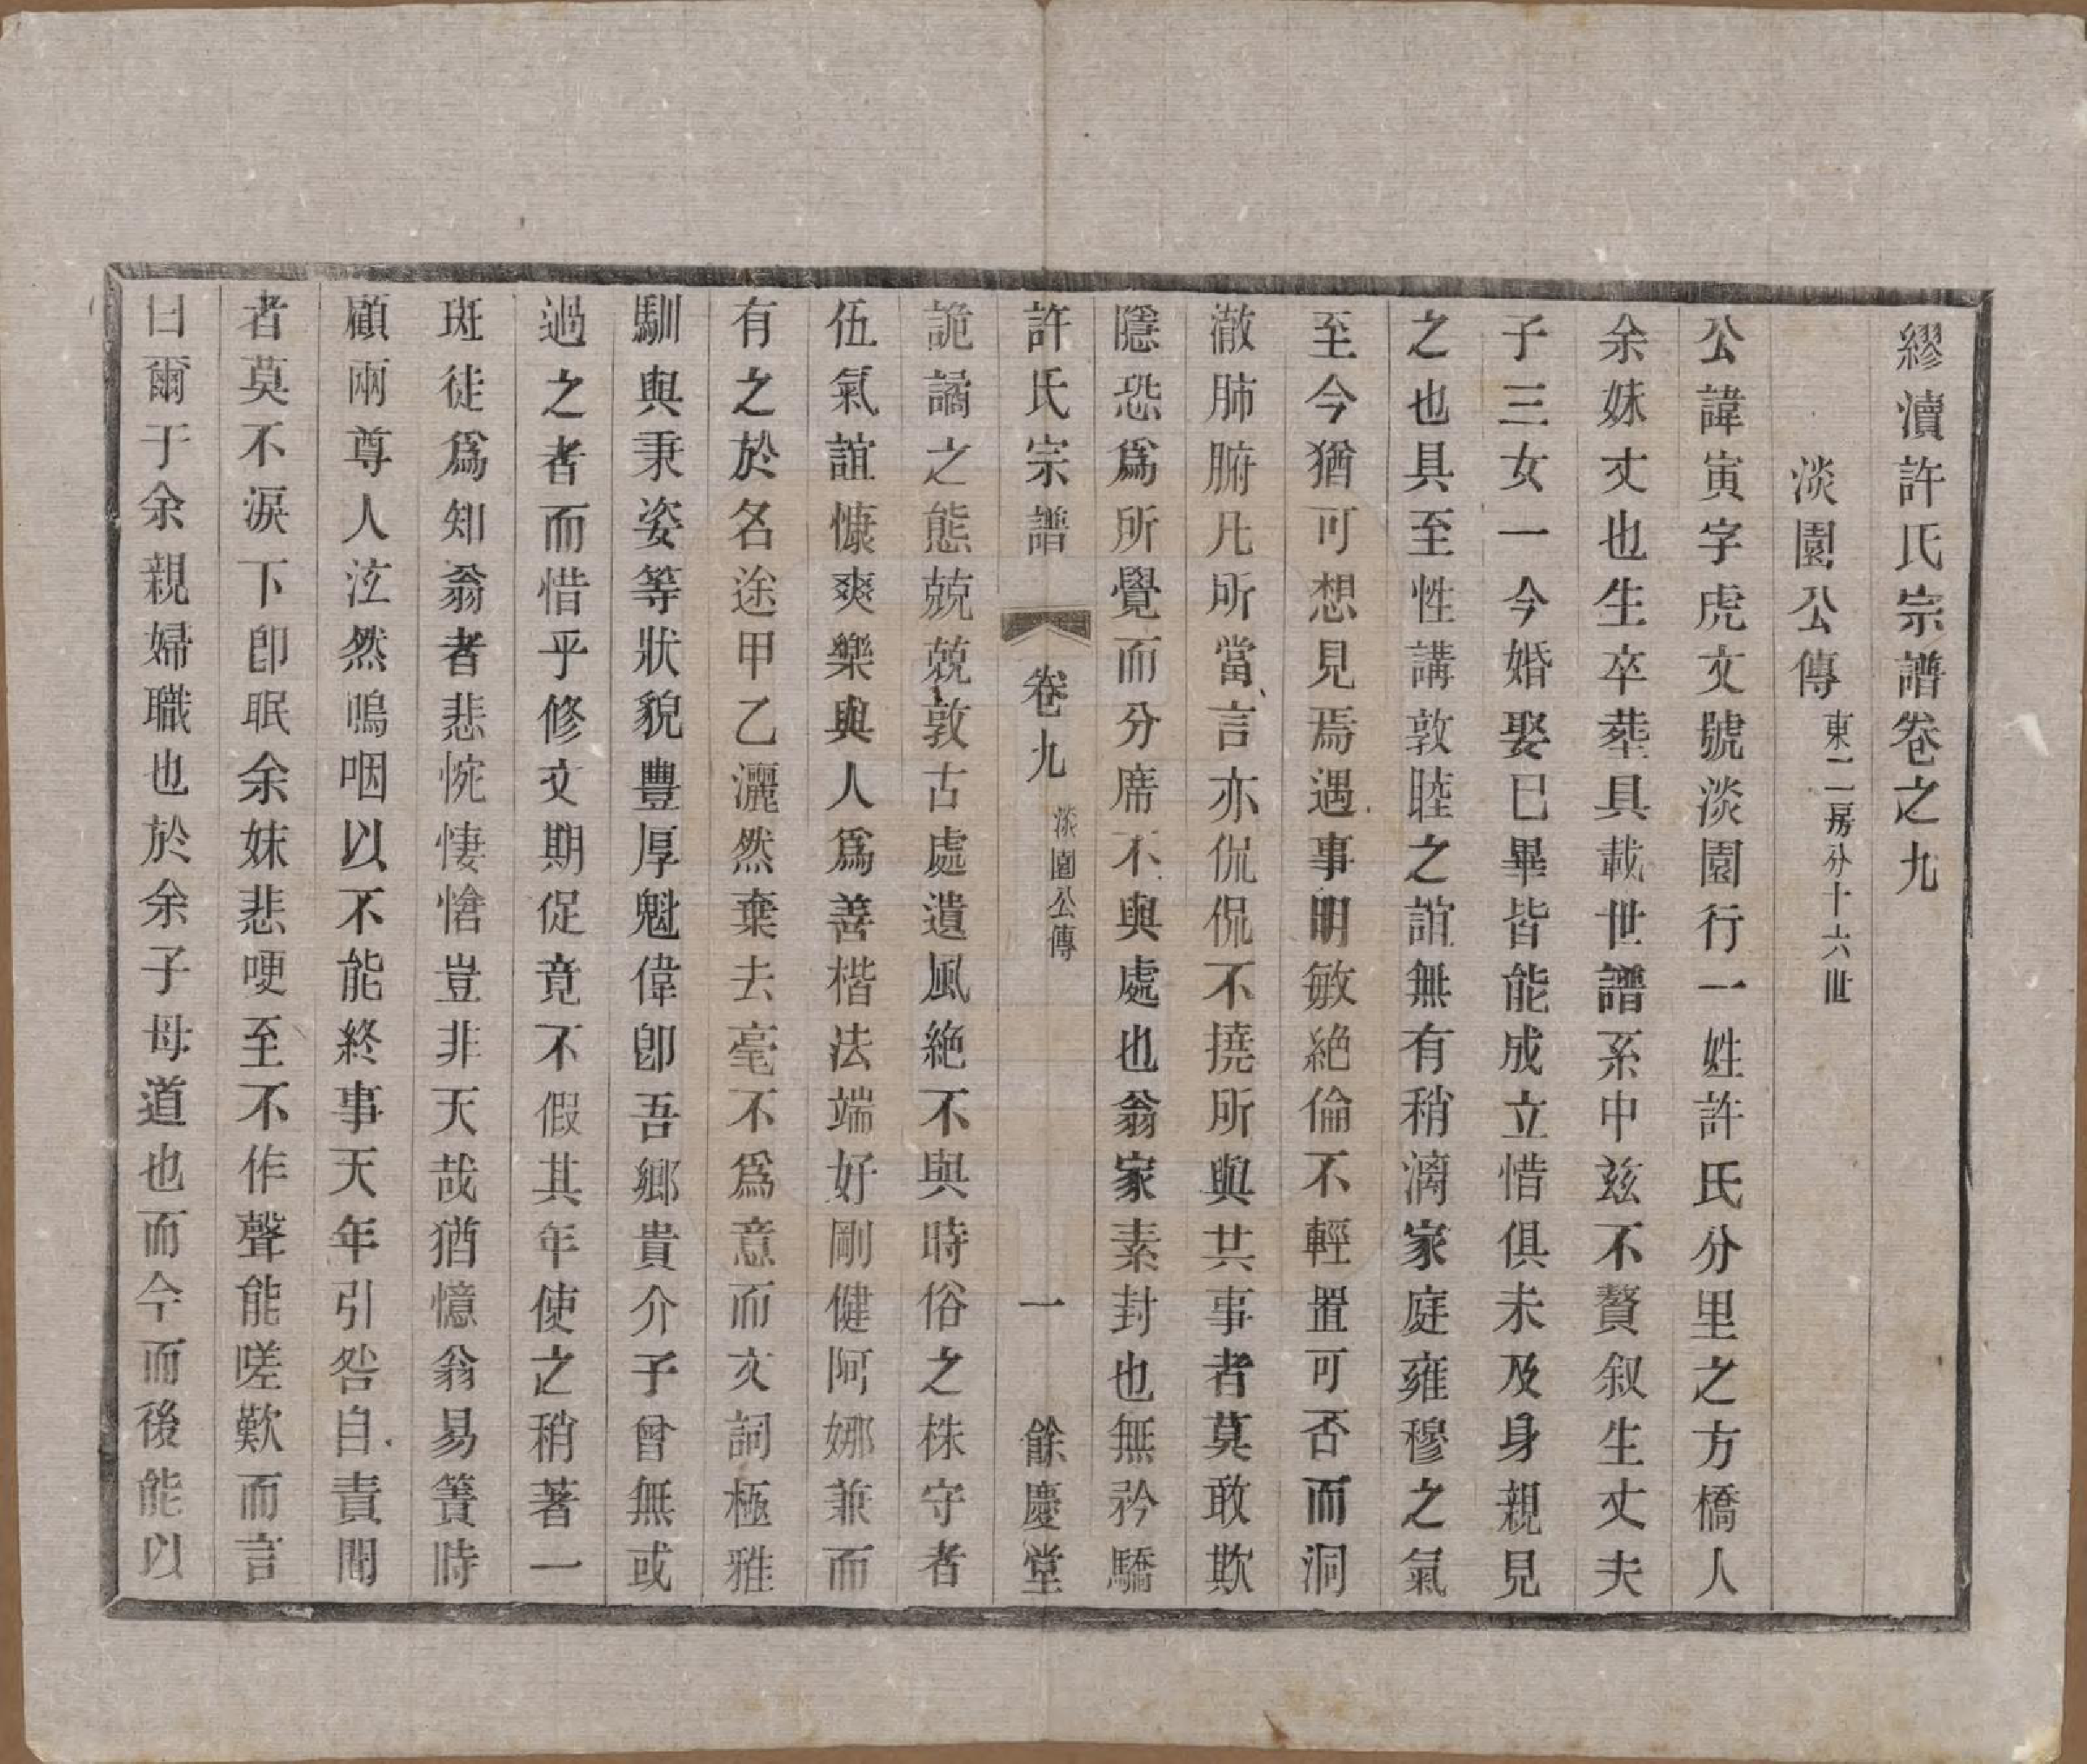 繆瀆許氏宗譜卷之九
淡園公傳 東二房分十六世
公諱寅字虎文號淡園行一姓許氏分里之方橋人
余妹丈也生卒塟具載世譜系中兹不贅叙生丈夫
子三女一今婚娶巳畢皆能成立惜俱未及身親見
之也具至性講敦睦之誼無有稍漓家庭雍穆之氣
至今猶可想見焉遇事明敏絶倫不輕置可否而洞
澈肺腑凡所當言亦侃侃不撓所與共事者莫敢欺
隱恐爲所覺而分席不與處也翁家素封也無矜驕
許氏宗譜 卷九 淡園公傳 一 餘慶堂
詭譎之態兢兢敦古處遺風絶不與時俗之株守者
伍氣誼慷爽樂與人爲善楷法端好剛健阿娜兼而
有之於名途甲乙灑然棄去毫不爲意而文詞極雅
馴與秉姿等狀貌豐厚魁偉卽吾鄉貴介子曾無或
過之者而惜乎修文期促竟不假其年使之稍著一
斑徒爲知翁者悲惋悽愴豈非天哉猶憶翁易簀時
顧兩尊人泣然嗚咽以不能終事天年引咎自責聞
者莫不淚下卽眠余妹悲哽至不作聲能嗟歎而言
曰爾于余親婦職也於余子母道也而今而後能以